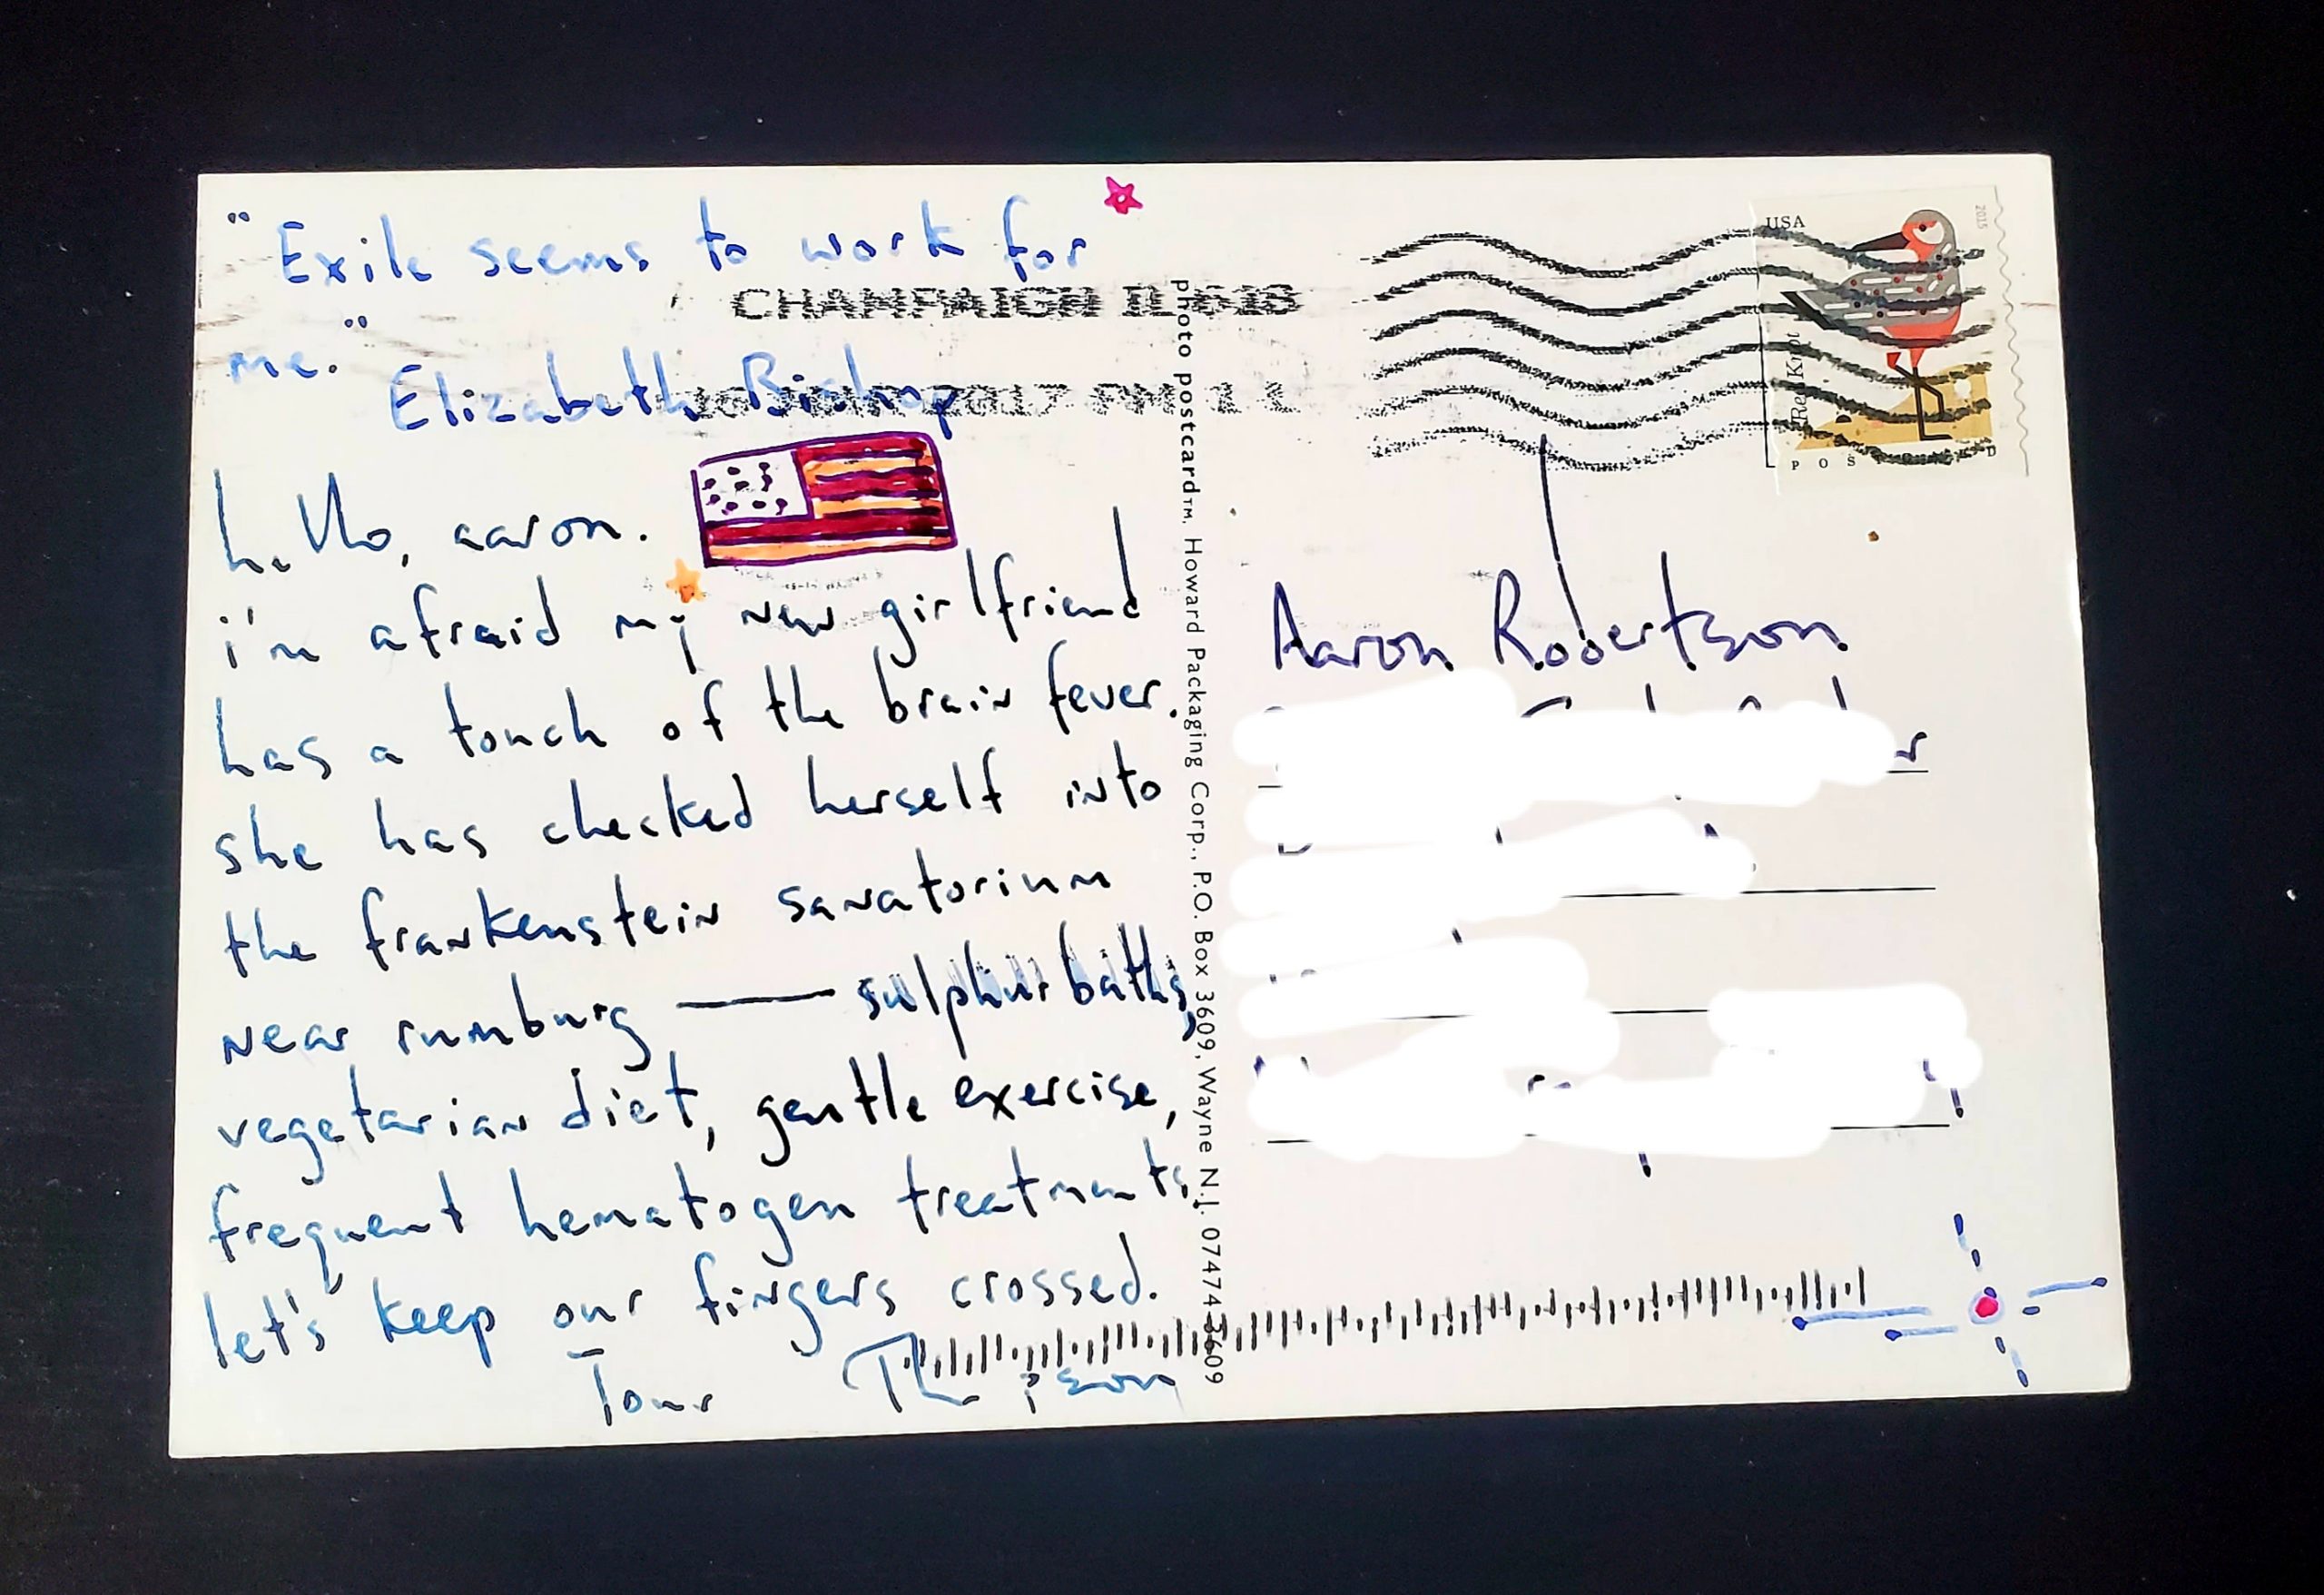 "Exile seems to work for
me."
Elizabeth Bishop
hello, aaron.
i'm afraid my new girlfriend
has a touch of the brain fever.
she has checked herself into
the frankenstein sanatorium
near rumburg — sulphur baths,
vegetarian diet, gentle exercise,
frequent hematogen treatments.
let's keep our fingers crossed.
Tour
photo postcard™. Howard Packaging Corp., P.O. Box 3609, Wayne N.J. 07474-3609
CHAMPAIGN IL 618
2017 PM 1 L
USA
2015
Red Knot
Aaron Robertson